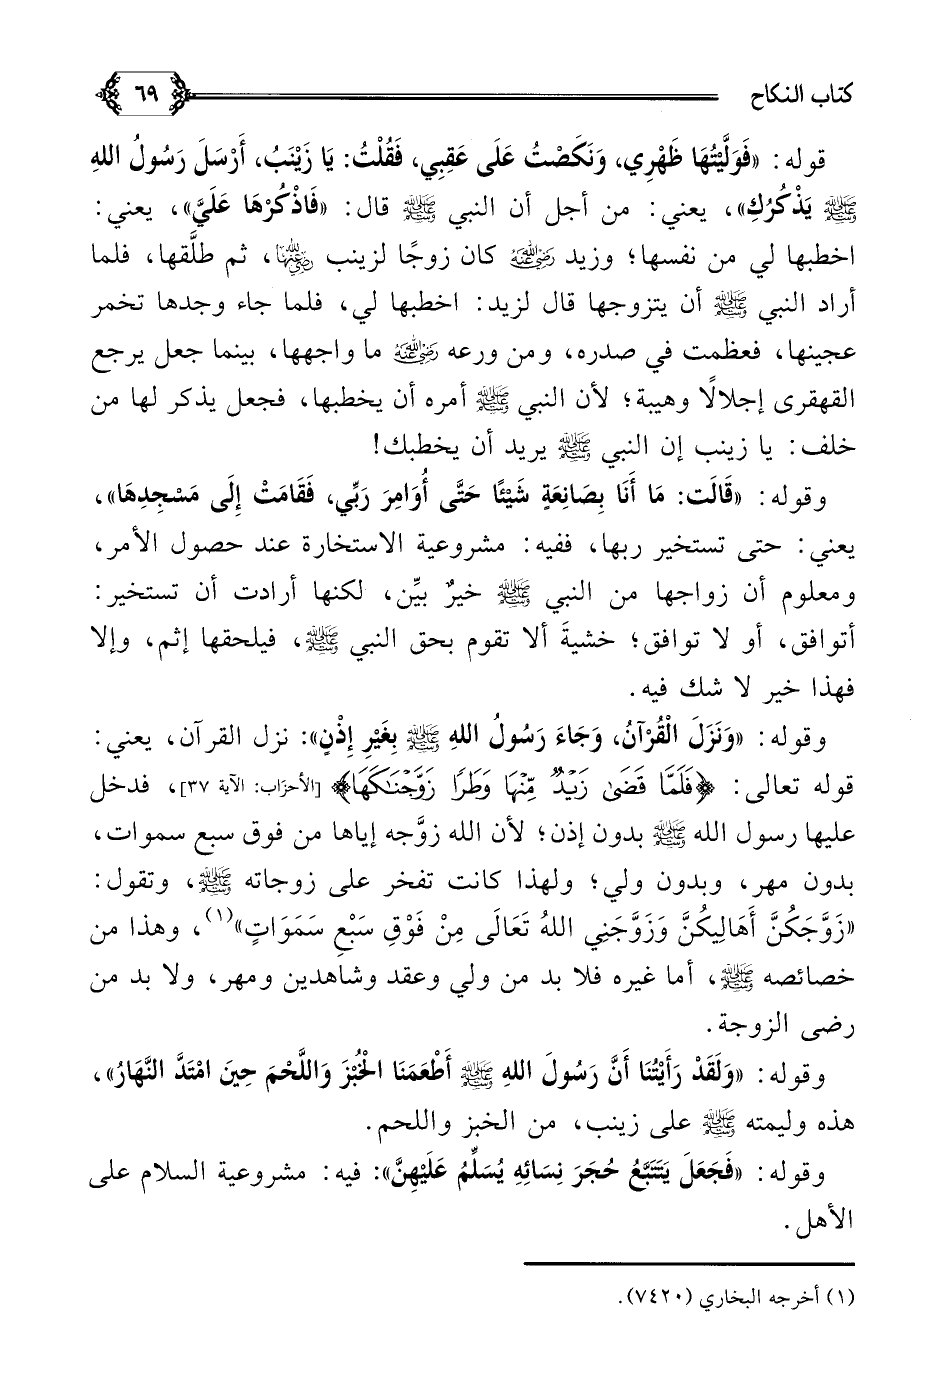 كتاب النكاح ٦٩
قوله: «فَوَلَّيْتُهَا ظَهْرِي، وَنَكَصْتُ عَلَى عَقِبِي، فَقُلْتُ: يَا زَيْنَبُ، أَرْسَلَ رَسُولُ اللهِ
ﷺ يَذْكُرُكِ»، يعني: من أجل أن النبي ﷺ قال: «فَاذْكُرْهَا عَلَيَّ»، يعني:
اخطبها لي من نفسها؛ وزيد رضي الله عنه كان زوجًا لزينب رضي الله عنها، ثم طلَّقها، فلما
أراد النبي ﷺ أن يتزوجها قال لزيد: اخطبها لي، فلما جاء وجدها تخمر
عجينها، فعظمت في صدره، ومن ورعه رضي الله عنه ما واجهها، بينما جعل يرجع
القهقرى إجلالًا وهيبة؛ لأن النبي ﷺ أمره أن يخطبها، فجعل يذكر لها من
خلف: يا زينب إن النبي ﷺ يريد أن يخطبك!
وقوله: «قَالَت: مَا أَنَا بِصَانِعَةٍ شَيْئًا حَتَّى أُوَامِرَ رَبِّي، فَقَامَتْ إِلَى مَسْجِدِهَا»،
يعني: حتى تستخير ربها، ففيه: مشروعية الاستخارة عند حصول الأمر،
ومعلوم أن زواجها من النبي ﷺ خيرٌ بيِّن، لكنها أرادت أن تستخير:
أتوافق، أو لا توافق؛ خشيةَ ألا تقوم بحق النبي ﷺ، فيلحقها إثم، وإلا
فهذا خير لا شك فيه.
وقوله: «وَنَزَلَ الْقُرْآنُ، وَجَاءَ رَسُولُ اللهِ ﷺ بِغَيْرِ إِذْنٍ»: نزل القرآن، يعني:
قوله تعالى: ﴿فَلَمَّا قَضَىٰ زَيْدٌ مِّنْهَا وَطَرًا زَوَّجْنَاكَهَا﴾ [الأحزَاب: الآية ٣٧]، فدخل
عليها رسول الله ﷺ بدون إذن؛ لأن الله زوَّجه إياها من فوق سبع سموات،
بدون مهر، وبدون ولي؛ ولهذا كانت تفخر على زوجاته ﷺ، وتقول:
«زَوَّجَكُنَّ أَهَالِيكُنَّ وَزَوَّجَنِي اللهُ تَعَالَى مِنْ فَوْقِ سَبْعِ سَمَوَاتٍ»(١)، وهذا من
خصائصه ﷺ، أما غيره فلا بد من ولي وعقد وشاهدين ومهر، ولا بد من
رضى الزوجة.
وقوله: «وَلَقَدْ رَأَيْتُنَا أَنَّ رَسُولَ اللهِ ﷺ أَطْعَمَنَا الْخُبْزَ وَاللَّحْمَ حِينَ امْتَدَّ النَّهَارُ»،
هذه وليمته ﷺ على زينب، من الخبز واللحم.
وقوله: «فَجَعَلَ يَتَتَبَّعُ حُجَرَ نِسَائِهِ يُسَلِّمُ عَلَيْهِنَّ»: فيه: مشروعية السلام على
الأهل.
(١) أخرجه البخاري (٧٤٢٠).